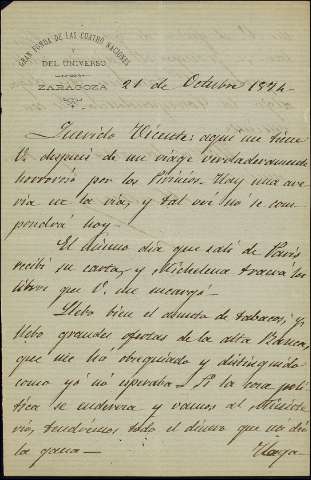 GRAN FONDA DE LAS CUATRO NACIONES
Y
DEL UNIVERSO
ZARAGOZA
21 de Octubre 1874.
Querido Vicente: aqui me tiene
V. despues de un viage verdaderamente
horroroso por los Pirineos. Hay una ave
ria en la via, y tal vez no se com
pondrá hoy.
El mismo dia que salí de Paris
recibí su carta, y Michelena traerá los
libros que V. me encargó.
Llebo bien el asunto de tabacos, y
llebo grandes ofertas de la alta Banca,
que me ha obsequiado y distinguido
como yó no esperaba. Si la cosa poli
tica se endereza y vamos al Ministe
rio, tendremos todo el dinero que nos dé
la gana—
Haga